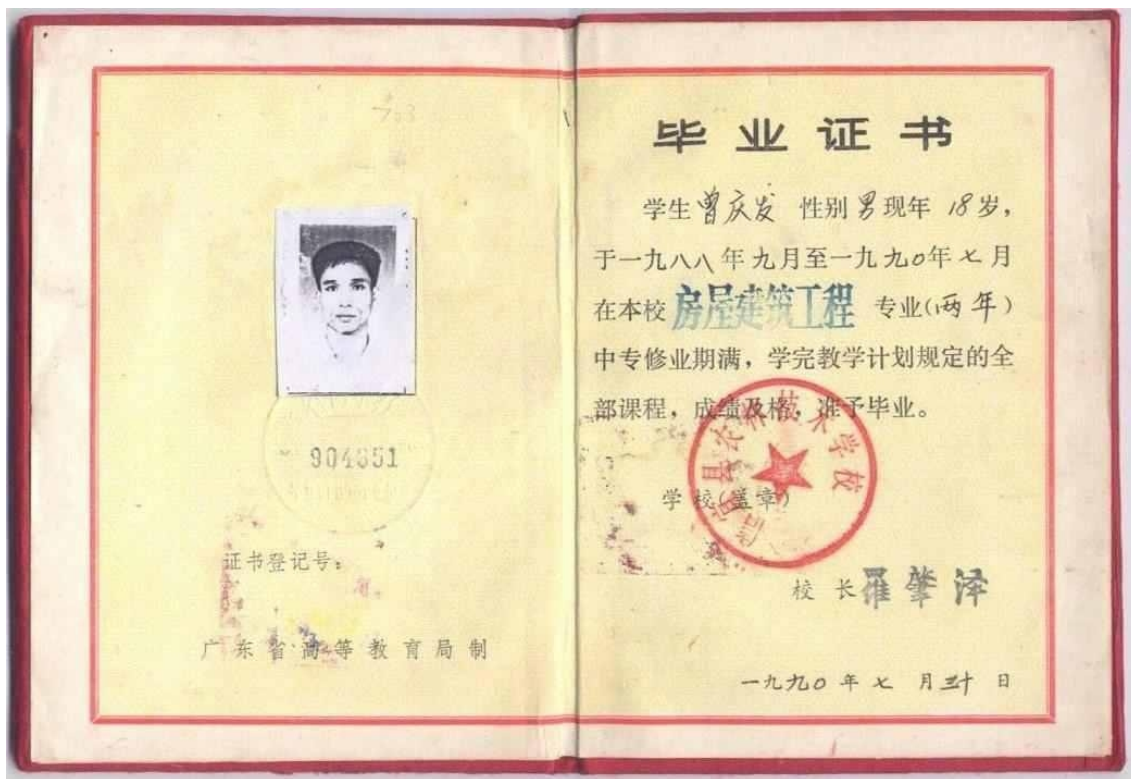 904351
证书登记号：
广东省高等教育局制
毕业证书
学生曾庆发 性别男现年 18岁，
于一九八八年九月至一九九〇年七月
在本校房屋建筑工程 专业（两年）
中专修业期满，学完教学计划规定的全
部课程，成绩及格，准予毕业。
信宜县农科技术学校
学校（盖章）
校长羅肇泽
一九九〇年七月三十日